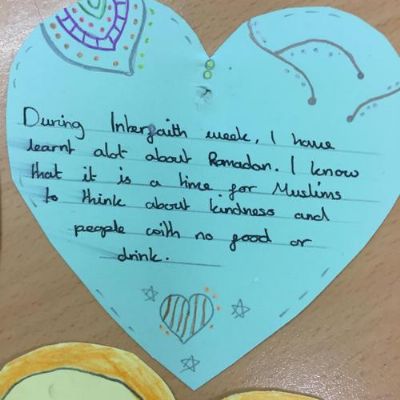 During Interfaith week, I have
learnt alot about Ramadan. I know
that it is a time for Muslims
to think about kindness and
people with no food or
drink.